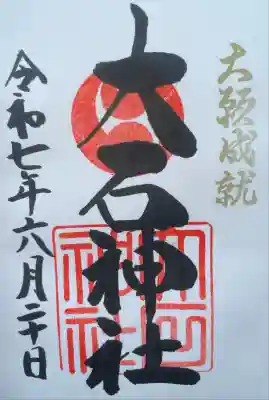 大願成就
大石神社
令和七年六月二十日
大石神社